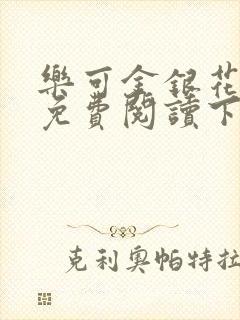 樂可金銀花
免費閱讀下
克利奧帕特拉